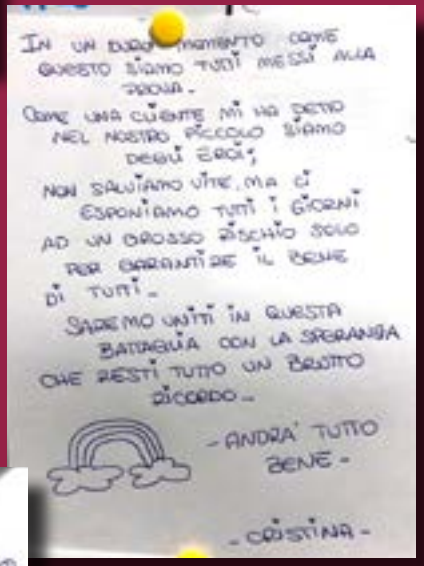 IN UN DURO MOMENTO COME
QUESTO SIAMO TUTTI MESSI ALLA
PROVA.
COME UNA CLIENTE MI HA DETTO
NEL NOSTRO PICCOLO SIAMO
DEGLI EROI;
NON SALVIAMO VITE, MA CI
ESPONIAMO TUTTI I GIORNI
AD UN GROSSO RISCHIO SOLO
PER GARANTIRE IL BENE
DI TUTTI.
SAREMO UNITI IN QUESTA
BATTAGLIA CON LA SPERANZA
CHE RESTI TUTTO UN BRUTTO
RICORDO.
- ANDRA' TUTTO
BENE -
- CRISTINA -